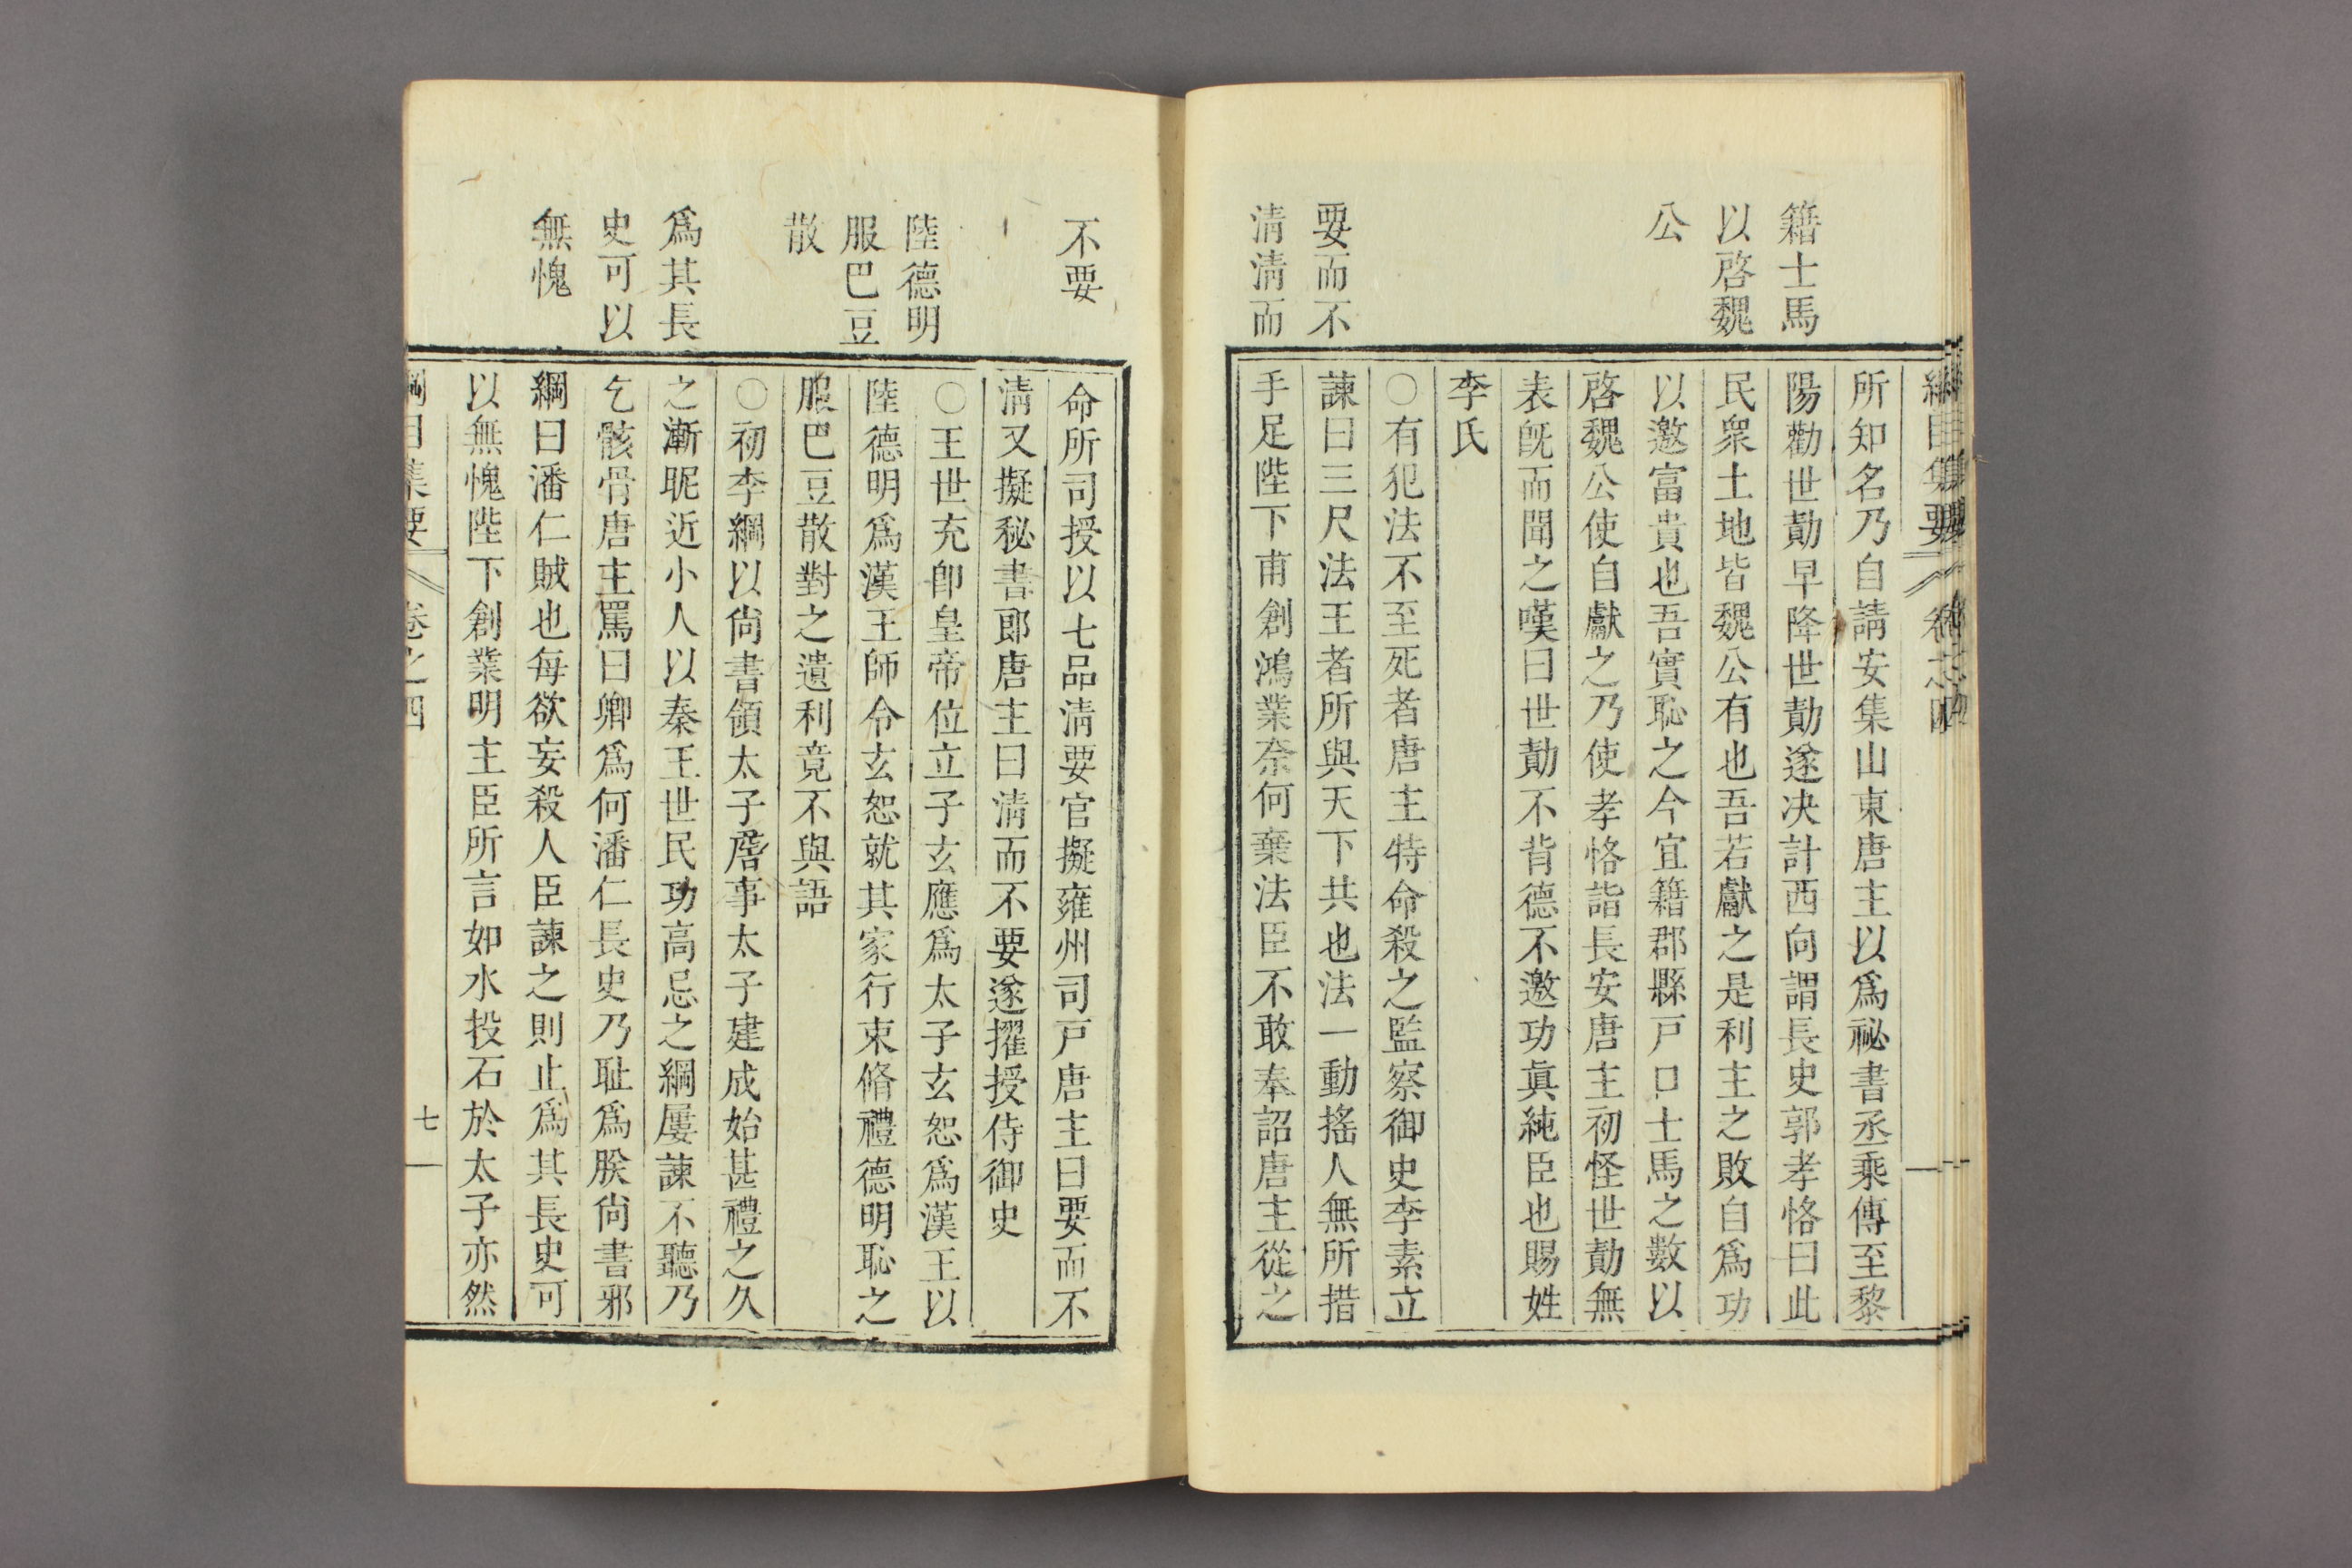 籍士馬
以啓魏
公
要而不
淸淸而
綱目集要 卷之四
所知名乃自請安集山東唐主以爲祕書丞乘傳至黎
陽勸世勣早降世勣遂决計西向謂長史郭孝恪曰此
民衆土地皆魏公有也吾若獻之是利主之敗自爲功
以邀富貴也吾實恥之今宜籍郡縣戸口士馬之數以
啓魏公使自獻之乃使孝恪詣長安唐主初怪世勣無
表旣而聞之嘆曰世勣不背德不邀功眞純臣也賜姓
李氏
〇有犯法不至死者唐主特命殺之監察御史李素立
諫曰三尺法王者所與天下共也法一動搖人無所措
手足陛下甫創鴻業奈何棄法臣不敢奉詔唐主從之
不要
陸德明
服巴豆
散
爲其長
史可以
無愧
命所司授以七品淸要官擬雍州司戸唐主曰要而不
淸又擬秘書郎唐主曰淸而不要遂擢授侍御史
〇王世充卽皇帝位立子玄應爲太子玄恕爲漢王以
陸德明爲漢王師令玄恕就其家行束脩禮德明恥之
服巴豆散對之遺利竟不與語
〇初李綱以尙書領太子詹事太子建成始甚禮之久
之漸昵近小人以秦王世民功高忌之綱屢諫不聽乃
乞骸骨唐主罵曰卿爲何潘仁長史乃耻爲朕尙書邪
綱曰潘仁賊也每欲妄殺人臣諫之則止爲其長史可
以無愧陛下創業明主臣所言如水投石於太子亦然
綱目集要 卷之四 七